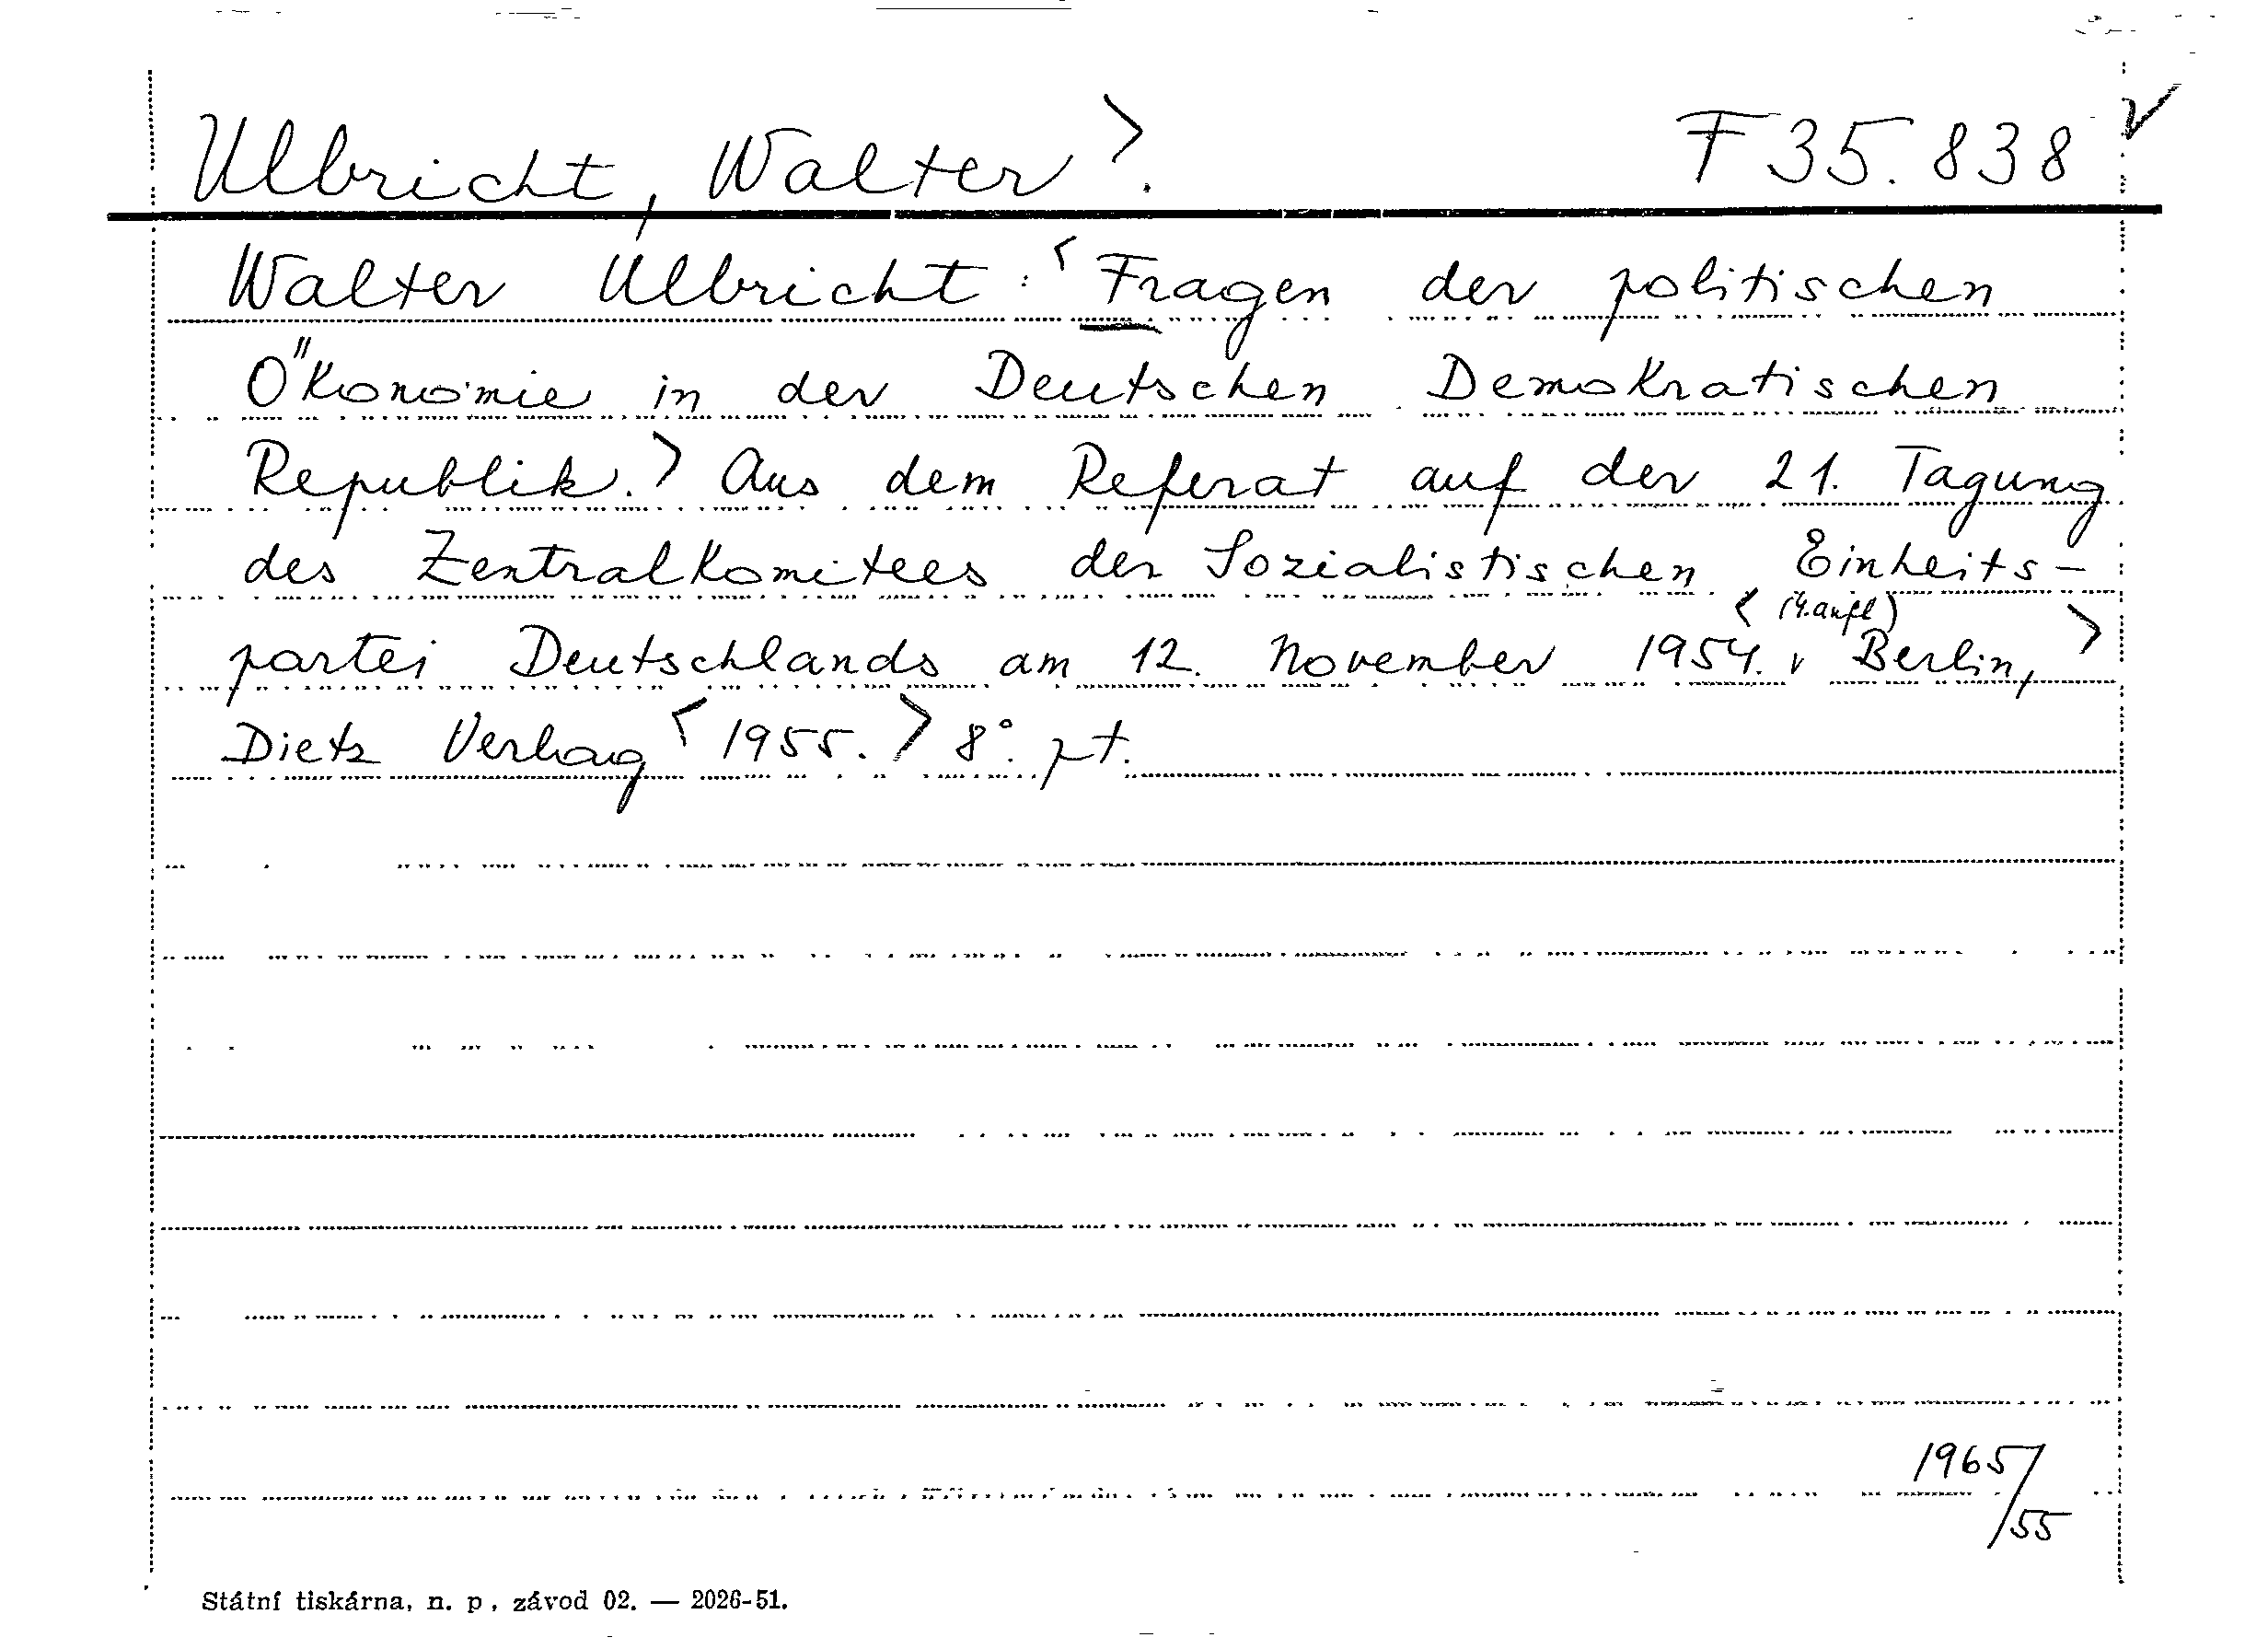 Ulbricht, Walter>. F 35.838 ✓
Walter Ulbricht: <Fragen der politischen
Ökonomie in der Deutschen Demokratischen
Republik.> Aus dem Referat auf der 21. Tagung
des Zentralkomitees der Sozialistischen Einheits-
< (4. aufl)
partei Deutschlands am 12. November 1954. v Berlin, >
Dietz Verlag <1955.> 8°. pt.
1965/55
Státní tiskárna, n. p., závod 02. — 2026-51.